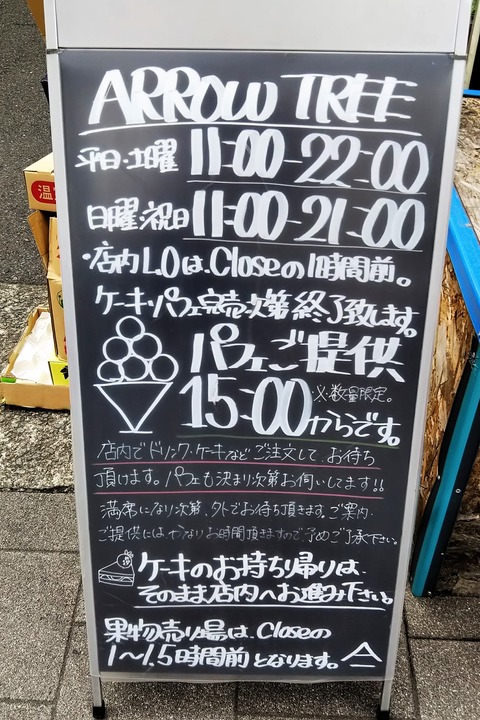 ARROW TREE
平日・土曜 11:00-22:00
日曜・祝日 11:00-21:00
・店内L.Oは、Closeの1時間前。
ケーキ・パフェ完売次第終了致します。
パフェご提供
15:00からです。
※数量限定。
店内でドリンク・ケーキなどご注文して、お待ち
頂けます。パフェも決まり次第お伺いしてます!!
満席になり次第、外でお待ち頂きます。ご案内・
ご提供にはかなりお時間頂きますので、予めご了承下さい。
ケーキのお持ち帰りは、
そのまま店内へお進み下さい。
果物売り場は、Closeの
1〜1.5時間前となります。
温